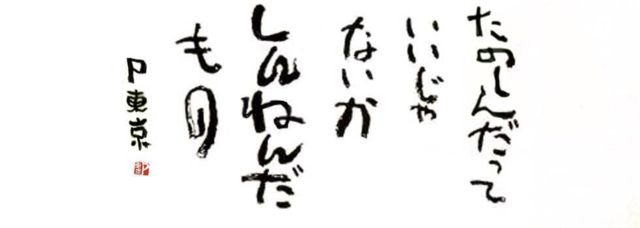 たのしんだって
いいじゃ
ないか
しんねんだ
もの
P東京